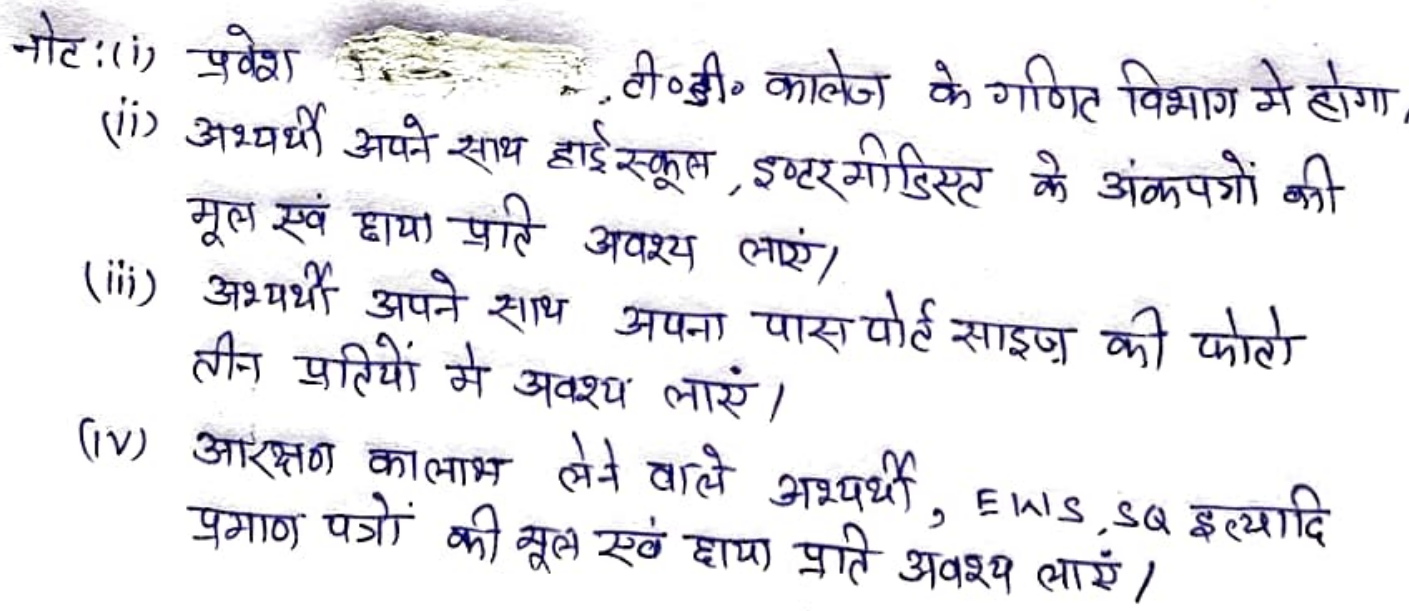 नोट:(i) प्रवेश , टी०डी० कालेज के गणित विभाग मे होगा,
(ii) अभ्यर्थी अपने साथ हाईस्कूल, इण्टरमीडिएट के अंकपत्रों की
मूल एवं छाया प्रति अवश्य लाएं।
(iii) अभ्यर्थी अपने साथ अपना पासपोर्ट साइज़ की फोटो
तीन प्रतियों मे अवश्य लाएं।
(iv) आरक्षण का लाभ लेने वाले अभ्यर्थी, EWS, SQ इत्यादि
प्रमाण पत्रों की मूल एवं छाया प्रति अवश्य लाएं।